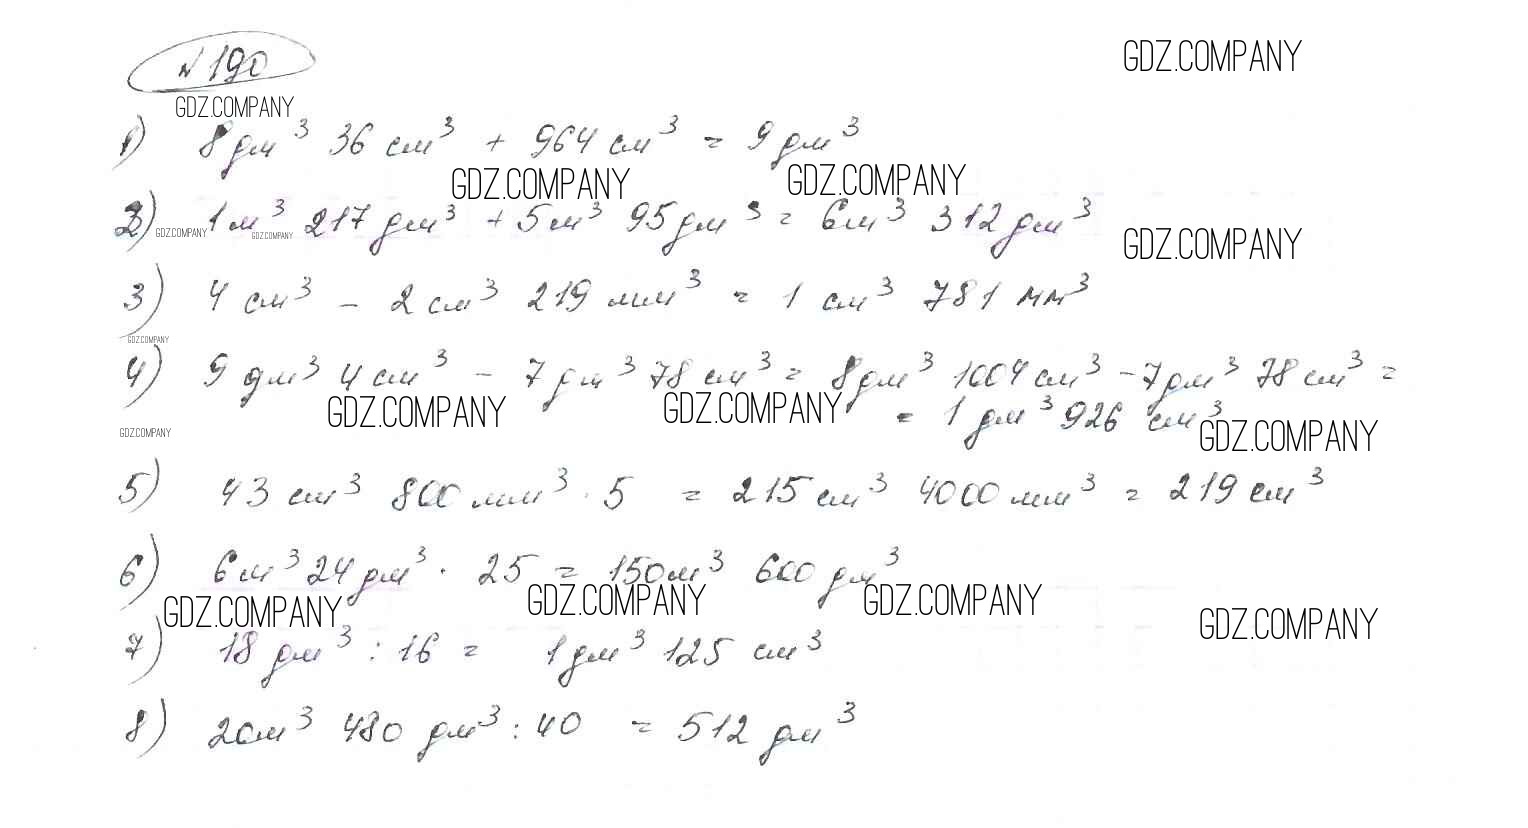 № 190
GDZ.COMPANY
GDZ.COMPANY
1) 8 дм³ 36 см³ + 964 см³ = 9 дм³
GDZ.COMPANY GDZ.COMPANY
2) 1 м³ 217 дм³ + 5 м³ 95 дм³ = 6 м³ 312 дм³
GDZ.COMPANY GDZ.COMPANY GDZ.COMPANY
3) 4 см³ - 2 см³ 219 мм³ = 1 см³ 781 мм³
GDZ.COMPANY
4) 9 дм³ 4 см³ - 7 дм³ 78 см³ = 8 дм³ 1004 см³ - 7 дм³ 78 см³ =
= 1 дм³ 926 см³
GDZ.COMPANY GDZ.COMPANY GDZ.COMPANY GDZ.COMPANY
5) 43 см³ 800 мм³ · 5 = 215 см³ 4000 мм³ = 219 см³
6) 6 м³ 24 дм³ · 25 = 150 м³ 600 дм³
GDZ.COMPANY GDZ.COMPANY GDZ.COMPANY GDZ.COMPANY
7) 18 дм³ : 16 = 1 дм³ 125 см³
8) 20 м³ 480 дм³ : 40 = 512 дм³